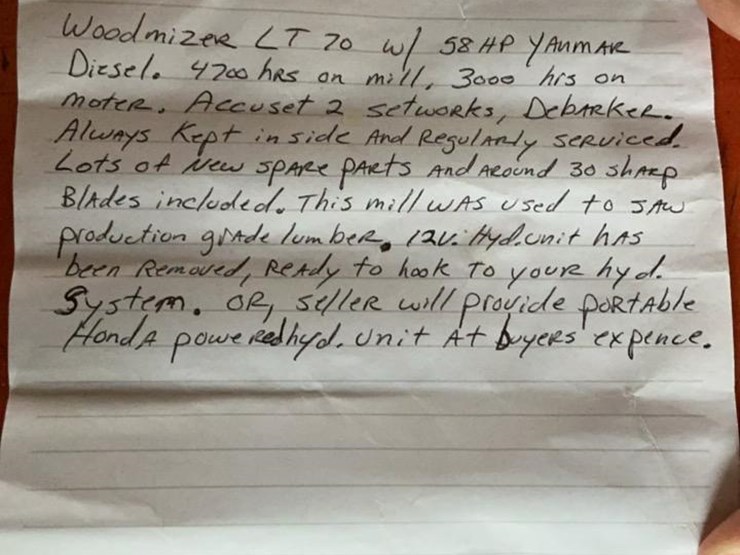 Woodmizer LT 70 w/ 58 HP Yanmar
Diesel. 4700 hrs on mill, 3000 hrs on
moter. Accuset 2 setworks, Debarker.
Always Kept inside And Regularly serviced.
Lots of New spare parts and around 30 sharp
Blades included. This mill was used to saw
production grade lumber. 12V. Hyd. unit has
been Removed, Ready to hook to your hyd.
System. OR, seller will provide portable
Honda powered hyd. unit At buyers expence.